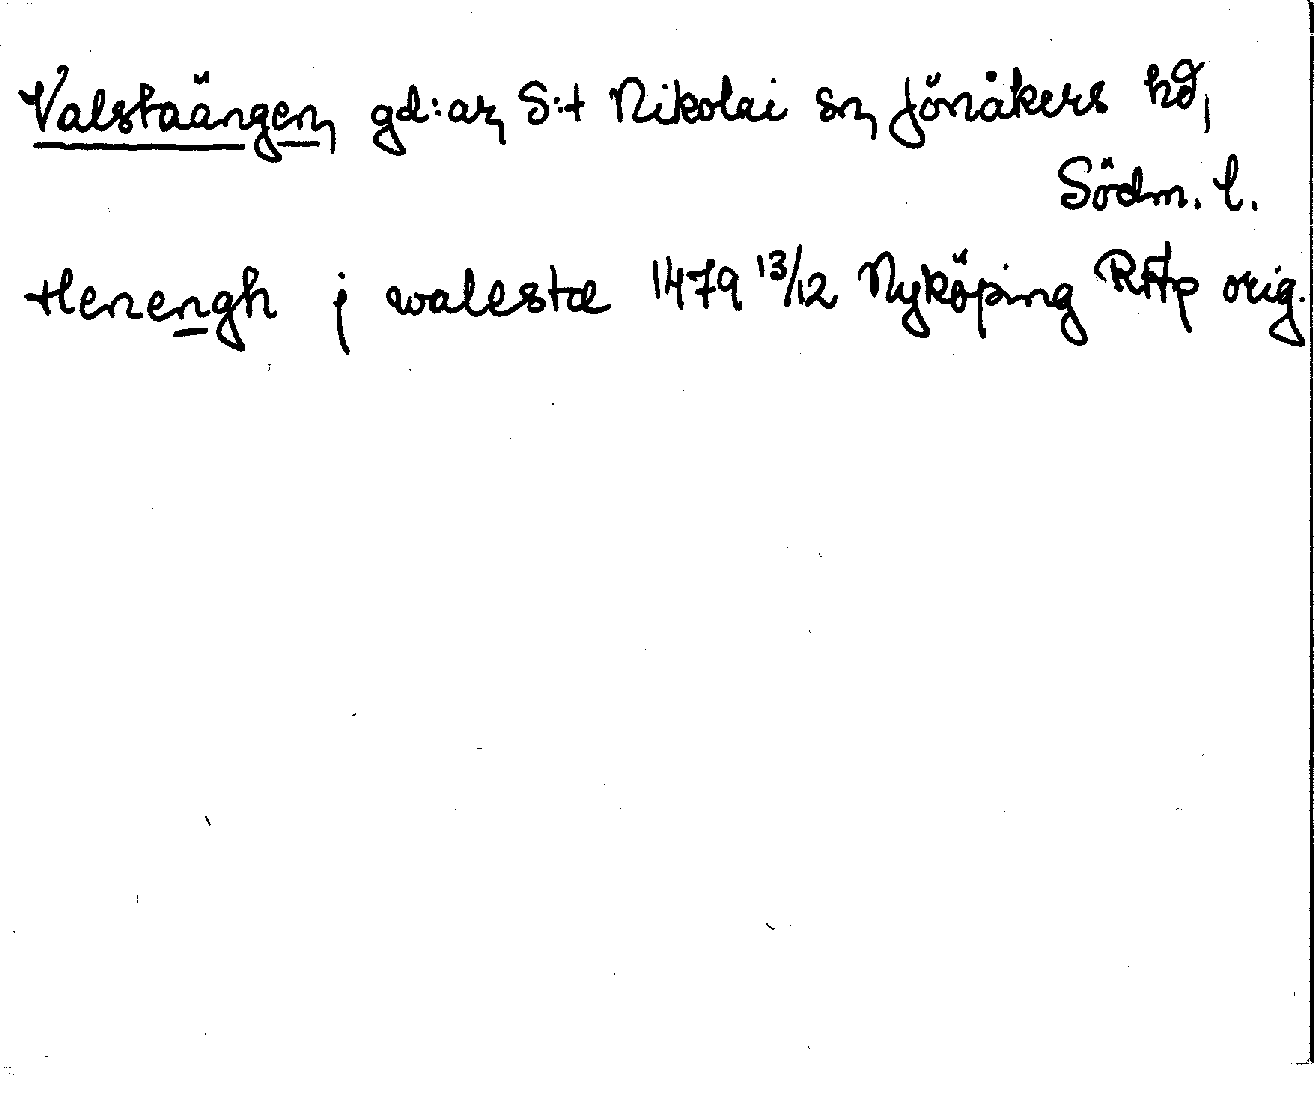 Valstaängen, gd:ar, S:t Nikolai sn, Jönåkers hd,
Södm. l.
Henengh j walestæ 1479 13/12 Nyköping RAp orig.